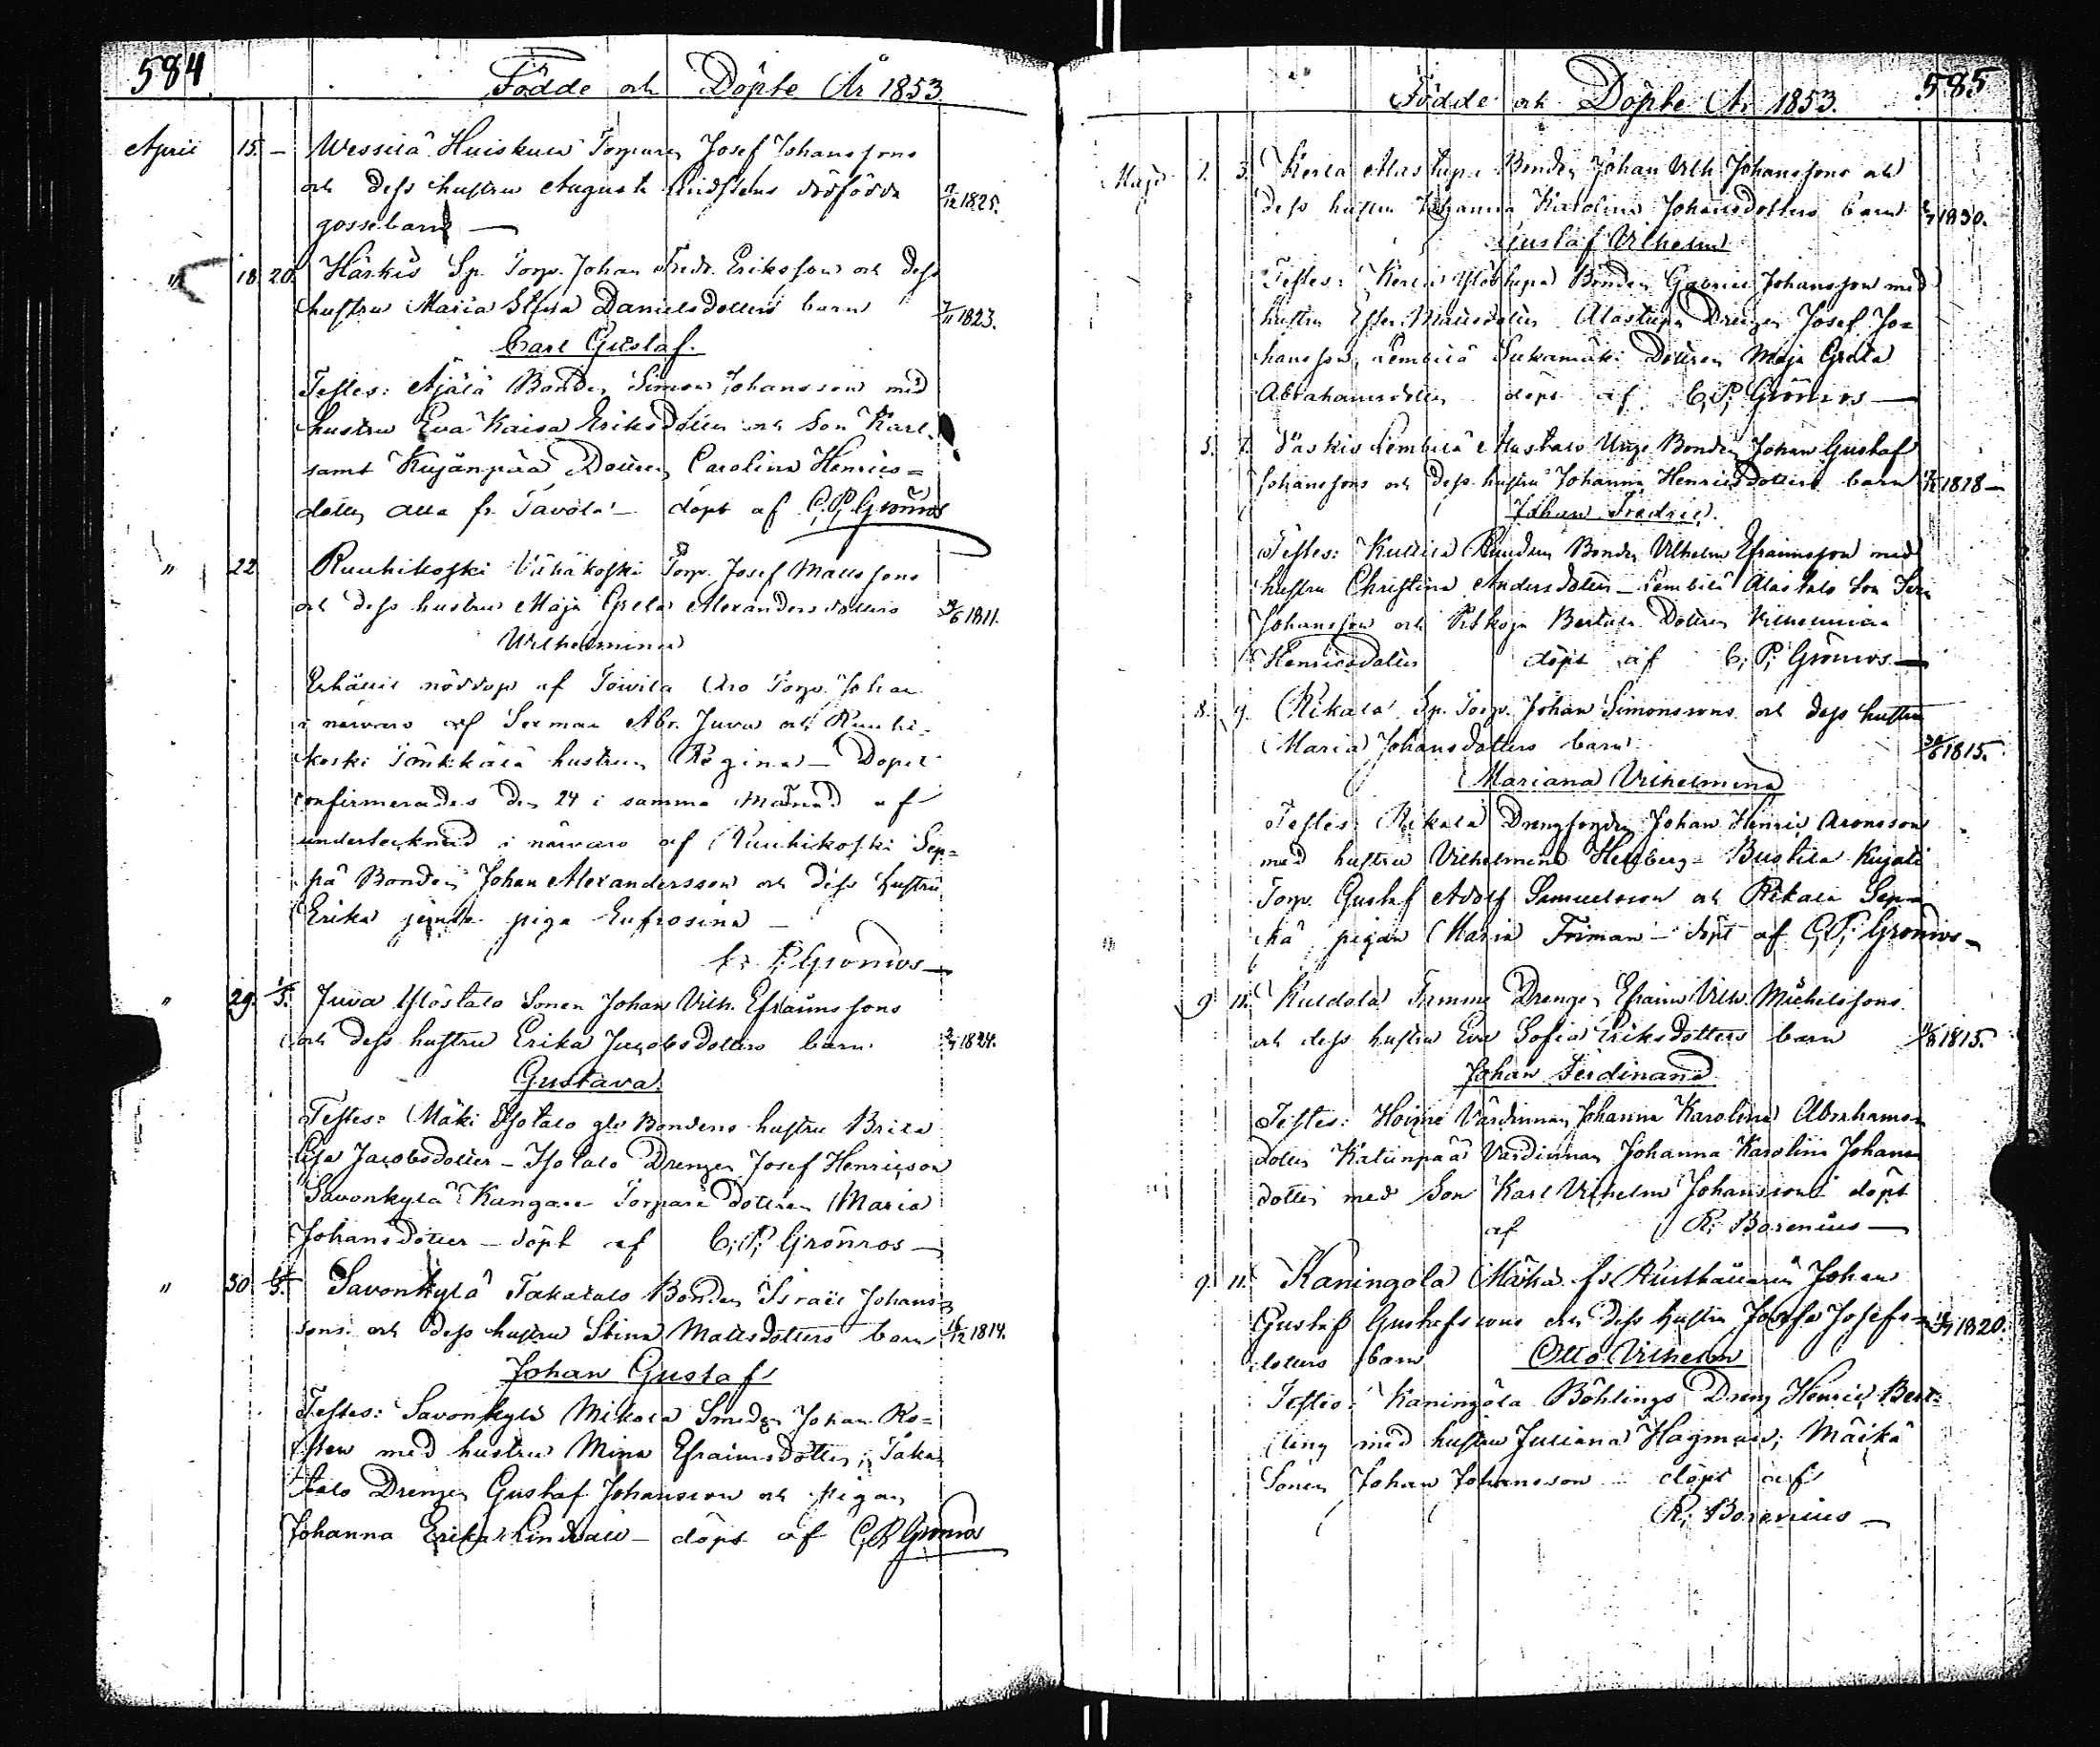 584
Födde och Döpte År 1853
April 15. — Wessilä Huiskula Torparen Josef Johanssons
och dess hustru Augusta Lindstens dödfödde
gossebarn — 1825.
" 18 20. Härkis Sp. Torp. Johan Fredr. Eriksson och dess
hustru Maria Stina Danielsdotters barn 7/11 1823.
Carl Gustaf.
Testes: Äjälä Bonden Simon Johansson med
hustru Eva Kaisa Eriksdotter och Son Karl,
samt Kujanpää Dottren Carolina Henrics=
dotter alla fr. Tavola — döpt af C. P. Grönros
" 22 Ruuhikoski Vähäkoski Torp. Josef Mattssons
och dess hustru Maja Greta Alexandersdotters /6 1811.
Wilhelmina
Erhållit nöddop af Toivila Aro Torp. Johan
i närvaro af Sexman Abr. Juva och Ruuhi-
koski Tönkkälä hustrun Regina — Dopet
confirmerades den 24 i samma Månad af
undertecknad i närvaro af Ruuhikoski Sep=
pä Bonden Johan Alexandersson och dess hustru
Erika jemte piga Eufrosina —
C. P. Grönros —
" 29. 1/5. Juva Ylöstalo Sonen Johan Vilh. Efraimssons
och dess hustru Erika Jacobsdotters barn 1824.
Gustava.
Testes: Mäki Isotalo gla Bondens hustru Brita
Lisa Jacobsdotter — Isotalo Drengen Josef Henricson
Savonkylä Kangare Torpare dottren Maria
Johansdotter — döpt af C. P. Grönros —
" 30 1/5. Savonkylä Takatalo Bonden Israel Johans=
sons och dess hustru Stina Mattsdotters barn 16/12 1814.
Johan Gustaf
Testes: Savonkylä Mikola Smeden Johan Ro=
sten med hustru Mina Efraimsdotter; Taka
talo Drengen Gustaf Johansson och pigan
Johanna Erika Lindvall — döpt af C. P. Grönros
585
Födde och Döpte År 1853.
Majo 1. 3. Kerla Alastupa Bonden Johan Vilh. Johanssons och
dess hustru Johanna Karolina Johansdotters barn 1830.
Gustaf Vilhelm
Testes: Kerla Ylöstupa Bonden Gabriel Johansson med
hustru Ester Mattsdotter Alastupa Drengen Josef Jo=
hansson, Lembilä Sukamäki Dottren Maja Greta
Abrahamsdotter döpt af C. P. Grönros —
5. 7. Lembilä Alastalo Unge Bonden Johan Gustaf
Johanssons och dess hustru Johanna Henricsdotters barn 1818 —
Johan Fredric.
Testes: Bonden Vilhelm Efraimsson med
hustru Christina Andersdotter — Lembilä Alastalo Son
Johansson och Bertula Dottren Vilhelmina
Henricsdotter döpt af C. P. Grönros. —
8. 9. Rikala Sp. Torp. Johan Simonssons och dess hustru
Maria Johansdotters barn /6 1815.
Mariana Vilhelmina
Testes: Rikala Johan Henric Aronsson
med hustru Vilhelmina Hellberg — Bustila Kujala
Torp. Gustaf Adolf Samuelsson och Rikala Sep=
pä pigan Maria Friman — döpt af C. P. Grönros —
9 11. Kuldola Drengen Efraim Vilh. Michelssons
och dess hustru Eva Sofia Eriksdotters barn 1815.
Johan Ferdinand
Testes: Värdinnan Johanna Karolina Abrahams
dotter Katiinpää Värdinnan Johanna Karolina Johans
dotter med Son Karl Vilhelm Johansson döpt
af R. Borenius —
9. 11. Kaningola Märkä fr. Rusthållaren Johan
Gustaf Gustafssons och dess hustru Josefa Josefs=
dotters barn 1820.
Otto Vilhelm
Testes: Kaningola Böhlings Dreng Henric Bert=
ling med hustru Juliana Hagman; Märkä
Sonen Johan Johansson döpt af
R. Borenius —